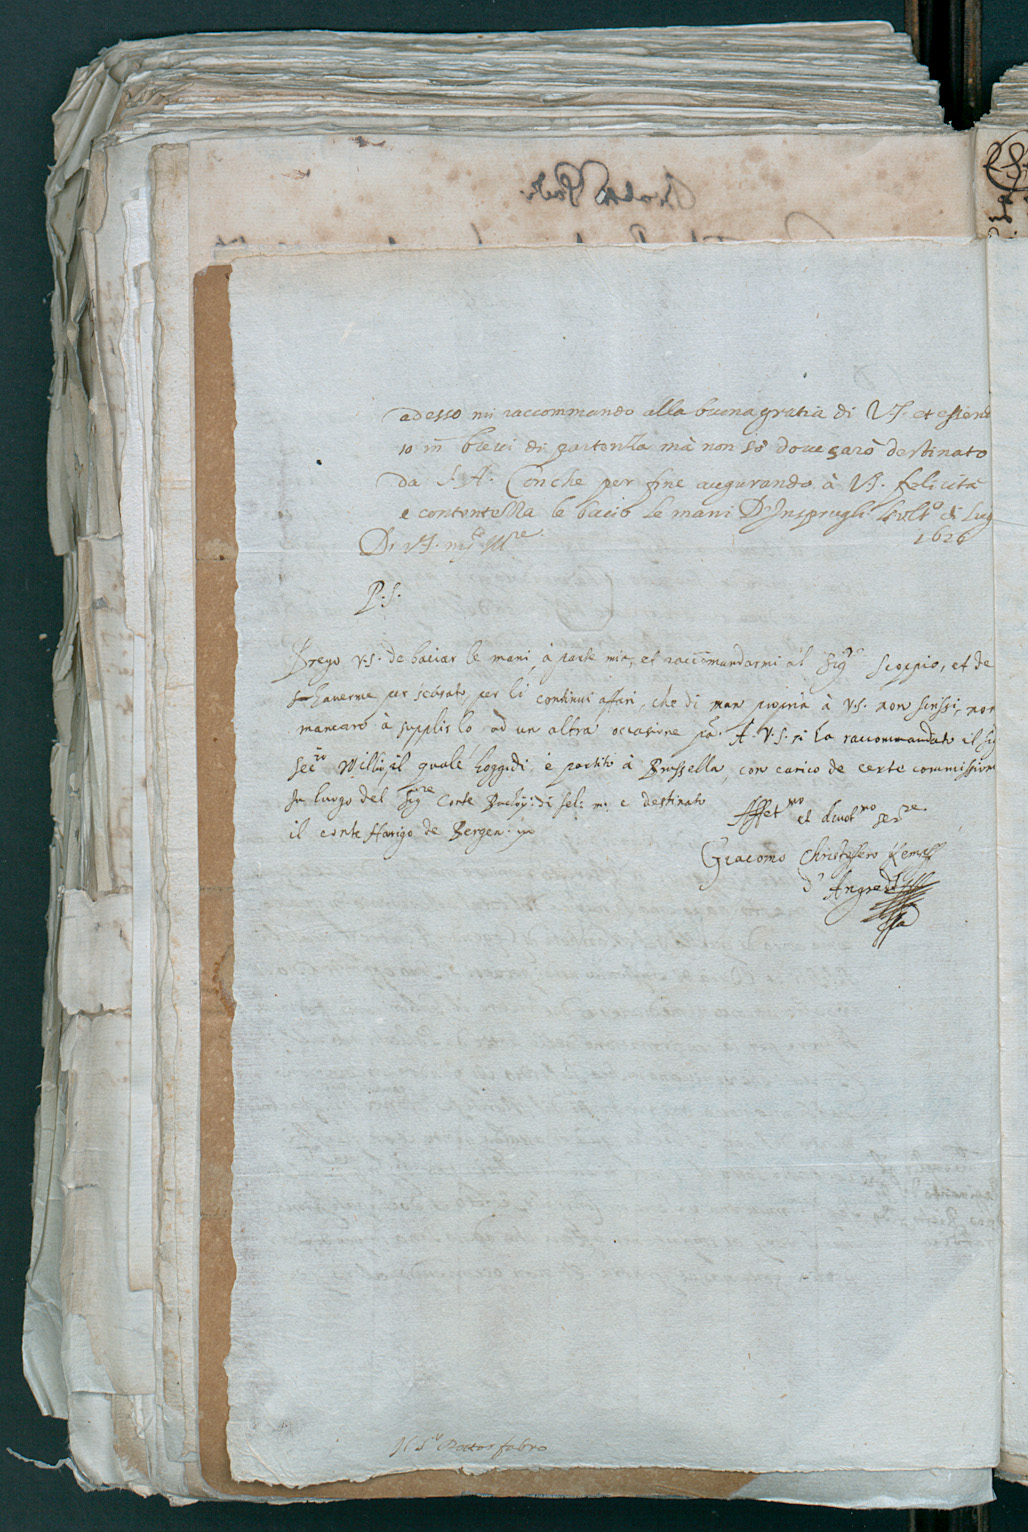 adesso mi raccommando alla buona gratia di V.S. et essend
io in brevi di partenza mà non sò dove sarò destinato
da S. A. Con che per fine augurando à V.S. felicità
e contentezza le bacio le mani D'Insprugh li ult.º di Lug
1626
Di V.S. m.
P.S.
Prego V.S. de baciar le mani à parte mia, et raccommandarmi al Sig.re Scoppio, et de
haverme per scusato, per li continui affari, che di man propria à V.S. non scrissi, non
mancarò à supplirlo ad un altra occasione. A V.S. si hà raccommandato il Sig
Sec.rio Willi, il quale hoggidi è partito à Brussella, con carico de certe commissioni
In luogo del Sig.re Conte fel: m: e destinato
il conte Harigo de Bergen.
Affet.mo et divot.mo ser.re
Giacomo Christoffero
d'
Il S.r Dottor fabro